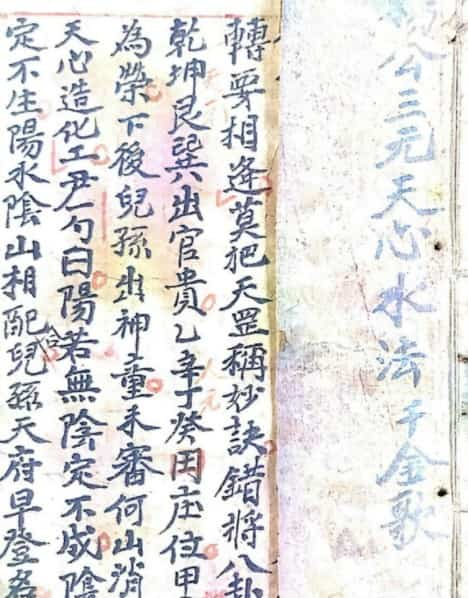 公三元天心水法 千金歌
轉要相逢莫把天罡稱妙訣錯將八卦
乾坤艮巽出官貴乙辛丁癸田庄位甲
為榮下後兒孫出神童未審何山消
天心造化工曰陽若無陰定不成陰
定不生陽水陰山相配合兒孫天府早登名